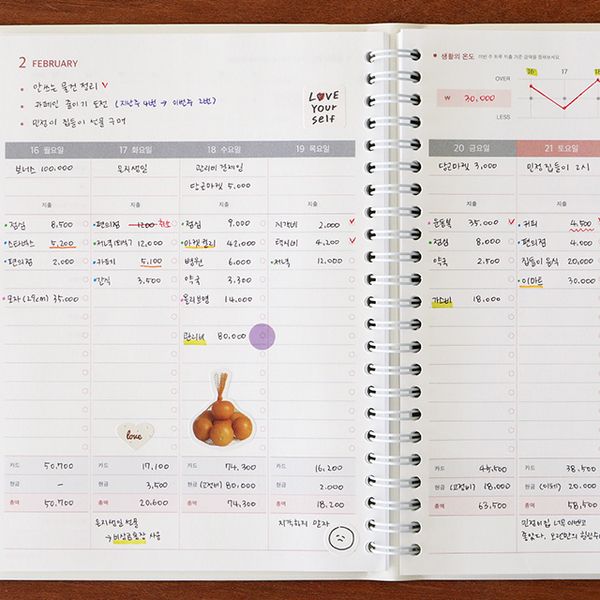 2 FEBRUARY
안쓰는 물건 정리 ✓
카페인 줄이기 도전 (지난주 4번 → 이번주 2번)
민정이 집들이 선물 구매
LOVE
Your
self
생활의 온도
OVER
₩ 30,000
LESS
16 17 18
16 월요일 17 화요일 18 수요일 19 목요일
보너스 100,000
관리비 결제일
당근마켓 5,000
지출 지출 지출 지출
점심 8,500 편의점 1200 취소 점심 9,000 지각비 2,000 ✓
스타벅스 5,200 12,000 마켓컬리 42,000 택시비 4,200 ✓
편의점 2,000 5,100 병원 6,000 저녁 12,000
간식 3,500 약국 3,300
모자 (29cm) 35,000 올리브영 14,000
관리비 80,000
love
카드 50,700 카드 17,100 카드 74,300 카드 16,200
현금 – 현금 3,500 현금 80,000 현금 2,000
총액 50,700 총액 20,600 총액 74,300 총액 18,200
선물
→ 비상금통장 사용
지각하지 말자
20 금요일 21 토요일
당근마켓 3,000 민정 집들이 2시
지출 지출
운동복 35,000 ✓ 커피 4,500
점심 8,000 편의점 4,000
약국 2,500 집들이 음식 20,000
이마트 30,000
18,000
카드 45,500 카드 38,500
현금 18,000 현금 20,000
총액 63,500 총액 58,500
민정이집 너무 예쁘고
좋았다.